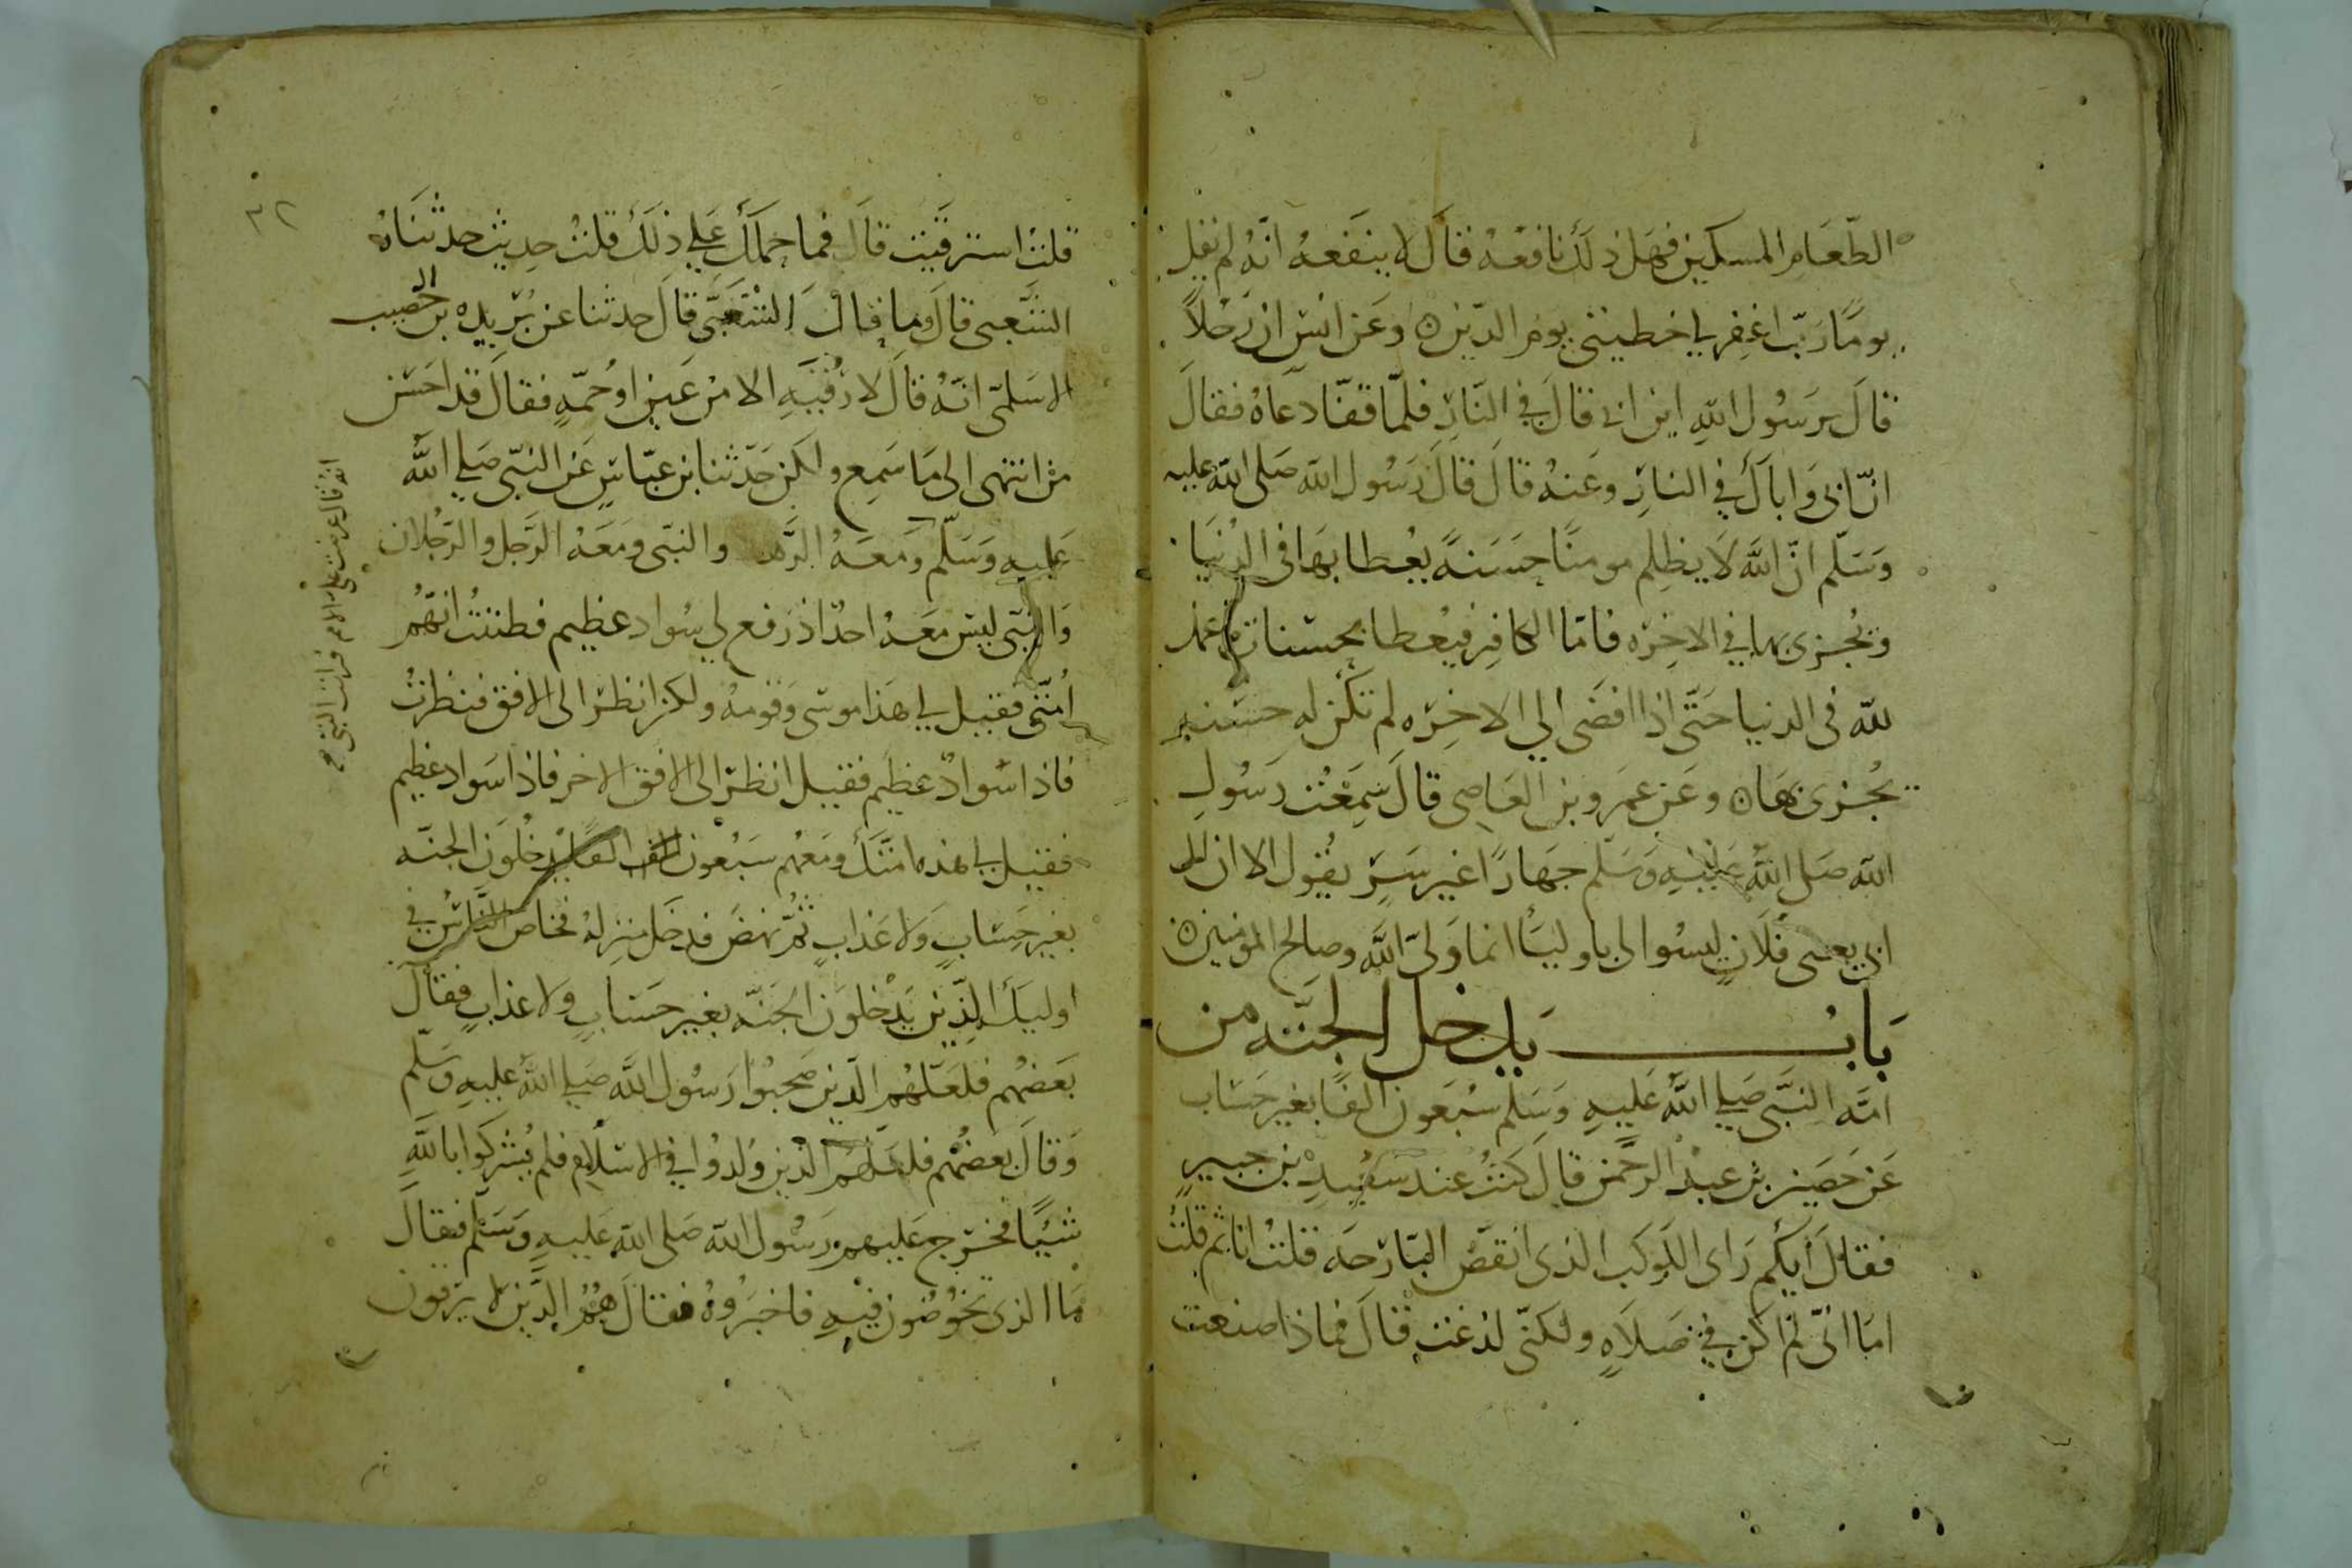 الطعام المسكين فهل ذلك نافعه قال لا ينفعه انه لم يقل
يوما رب اغفر لي خطيئتي يوم الدين وعن انس ان رجلا
قال يرسول الله اين ابي قال في النار فلما قفا دعاه فقال
ان ابي واباك في النار وعنه قال قال رسول الله صلى الله عليه
وسلم ان الله لا يظلم مومنا حسنة يعطا بها في الدنيا
ويجزى بها في الاخره فاما الكافر فيعطا بحسنات ما عمل
لله في الدنيا حتى اذا افضى الى الاخره لم تكن له حسنه
يجزى بها وعن عمرو بن العاصى قال سمعت رسول
الله صلى الله عليه وسلم جهارا غير سر يقول الا ان ال
ابي يعنى فلان ليسوا لي باوليا انما ولي الله وصالح المومنين
باب يدخل الجنه من
امة النبي صلى الله عليه وسلم سبعون الفا بغير حساب
عن حصين بن عبد الرحمن قال كنت عند سعيد بن جبير
فقال ايكم راى الكوكب الذى انقض البارحه قلت انا ثم قلت
اما اني لم اكن في صلاه ولكني لدغت قال فماذا صنعت
٣٢
قلت استرقيت قال فما حملك على ذلك قلت حديث حدثناه
الشعبى قال وما قال الشعبى قال حدثنا عن بريده بن الحصيب
الاسلمى انه قال لا رقيه الا من عين او حمه فقال قد احسن
من انتهى الى ما سمع ولكن حدثنا ابن عباس عن النبي صلى الله
عليه وسلم ومعه والنبى ومعه الرجل والرجلان
والنبى ليس معه احد اذ رفع لي سواد عظيم فظننت انهم
امتى فقيل لي هذا موسى وقومه ولكن انظر الى الافق فنظرت
فاذا سواد عظيم فقيل انظر الى الافق الاخر فاذا سواد عظيم
فقيل لي هذه امتك ومعهم سبعون الف يدخلون الجنه
بغير حساب ولا عذاب ثم نهض فدخل منزله فخاض الناس في
اوليك الذين يدخلون الجنه بغير حساب ولا عذاب فقال
بعضهم فلعلهم الذين صحبوا رسول الله صلى الله عليه وسلم
وقال بعضهم فلعلهم الذين ولدوا في الاسلام فلم يشركوا بالله
شيئا فخرج عليهم رسول الله صلى الله عليه وسلم فقال
ما الذى تخوضون فيه فاخبروه فقال هم الذين لا يرقون
انه قال عرضت علي الامم فرايت النبى